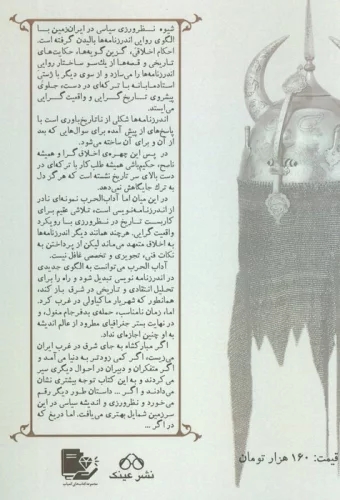 شیوهٔ نظرورزی سیاسی در ایران‌زمین با
الگوی روایی اندرزنامه‌ها بالیدن گرفته است.
احکام اخلاقی، گزین گویه‌ها، حکایت‌های
تاریخی و قصه‌ها از یک‌سو ساختار روایی
اندرزنامه‌ها را می‌سازد و از سوی دیگر با ژستی
استادمآبانه با ترکه‌ای در دست، جلوی
پیشروی تاریخ‌گرایی و واقعیت‌گرایی
می‌ایستد.
اندرزنامه‌ها شکلی از ناتاریخ‌باوری است با
پاسخ‌های از پیش آمده برای سوال‌هایی که بعد
از آن و برای آن ساخته می‌شود.
در پس این چهره‌ی اخلاق‌گرا و همیشه
ناصح، حکیم‌باشی همیشه طلب‌کار با ترکه‌ای در
دست بالای سر تاریخ نشسته است که هرگز دل
به ترک جایگاهش نمی‌دهد.
در این میان اما آداب‌الحرب نمونه‌ای نادر
از اندرزنامه‌نویسی است، تلاشی عقیم برای
کاربست تاریخ در نظرورزی با رویکرد
واقعیت‌گرایی. هرچند همانند دیگر اندرزنامه‌ها
به اخلاق متعهد می‌ماند لیکن از پرداختن به
نکات فنی، تجویزی و تخصصی غافل نیست.
آداب الحرب می‌توانست به الگوی جدیدی
در اندرزنامه نویسی تبدیل شود و راه را برای
تحلیل انتقادی و تاریخی در شرق باز کند،
همانطور که شهریار ماکیاولی در غرب کرد.
اما، زمان نامناسب، حمله‌ی بدفرجام مغول، و
در نهایت بستر جغرافیای مطرود از عالم اندیشه
به او چنین اجازه‌ای نداد.
اگر مبارکشاه به جای شرق در غرب ایران
می‌زیست، اگر کمی زودتر به دنیا می‌آمد و
اگر متفکران و دبیران در احوال دیگری سیر
می‌کردند و به این کتاب توجه بیشتری نشان
می‌دادند و اگر ... داستان‌مان طور دیگر رقم
می‌خورد و نظرورزی و اندیشه سیاسی در این
سرزمین شمایل بهتری می‌یافت. اما دریغ که
در اگر ...
قیمت: ۱۶۰ هزار تومان
نشر عینک